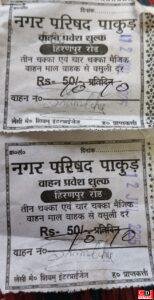 क्र०सं० दिनांक
नगर परिषद पाकुड़
वाहन प्रवेश शुल्क
हिरणपुर रोड
तीन चक्का एवं चार चक्का मैजिक
वाहन माल वाहक से वसुली दर
Rs- 50/- प्रतिदिन
वाहन नो
लेसी मे० शिवम् इंटरप्राईजेज ह० प्राप्तकर्ता
क्र०सं० दिनांक
नगर परिषद पाकुड़
वाहन प्रवेश शुल्क
हिरणपुर रोड
तीन चक्का एवं चार चक्का मैजिक
वाहन माल वाहक से वसुली दर
Rs- 50/- प्रतिदिन
वाहन नो
लेसी मे० शिवम् इंटरप्राईजेज ह० प्राप्तकर्ता